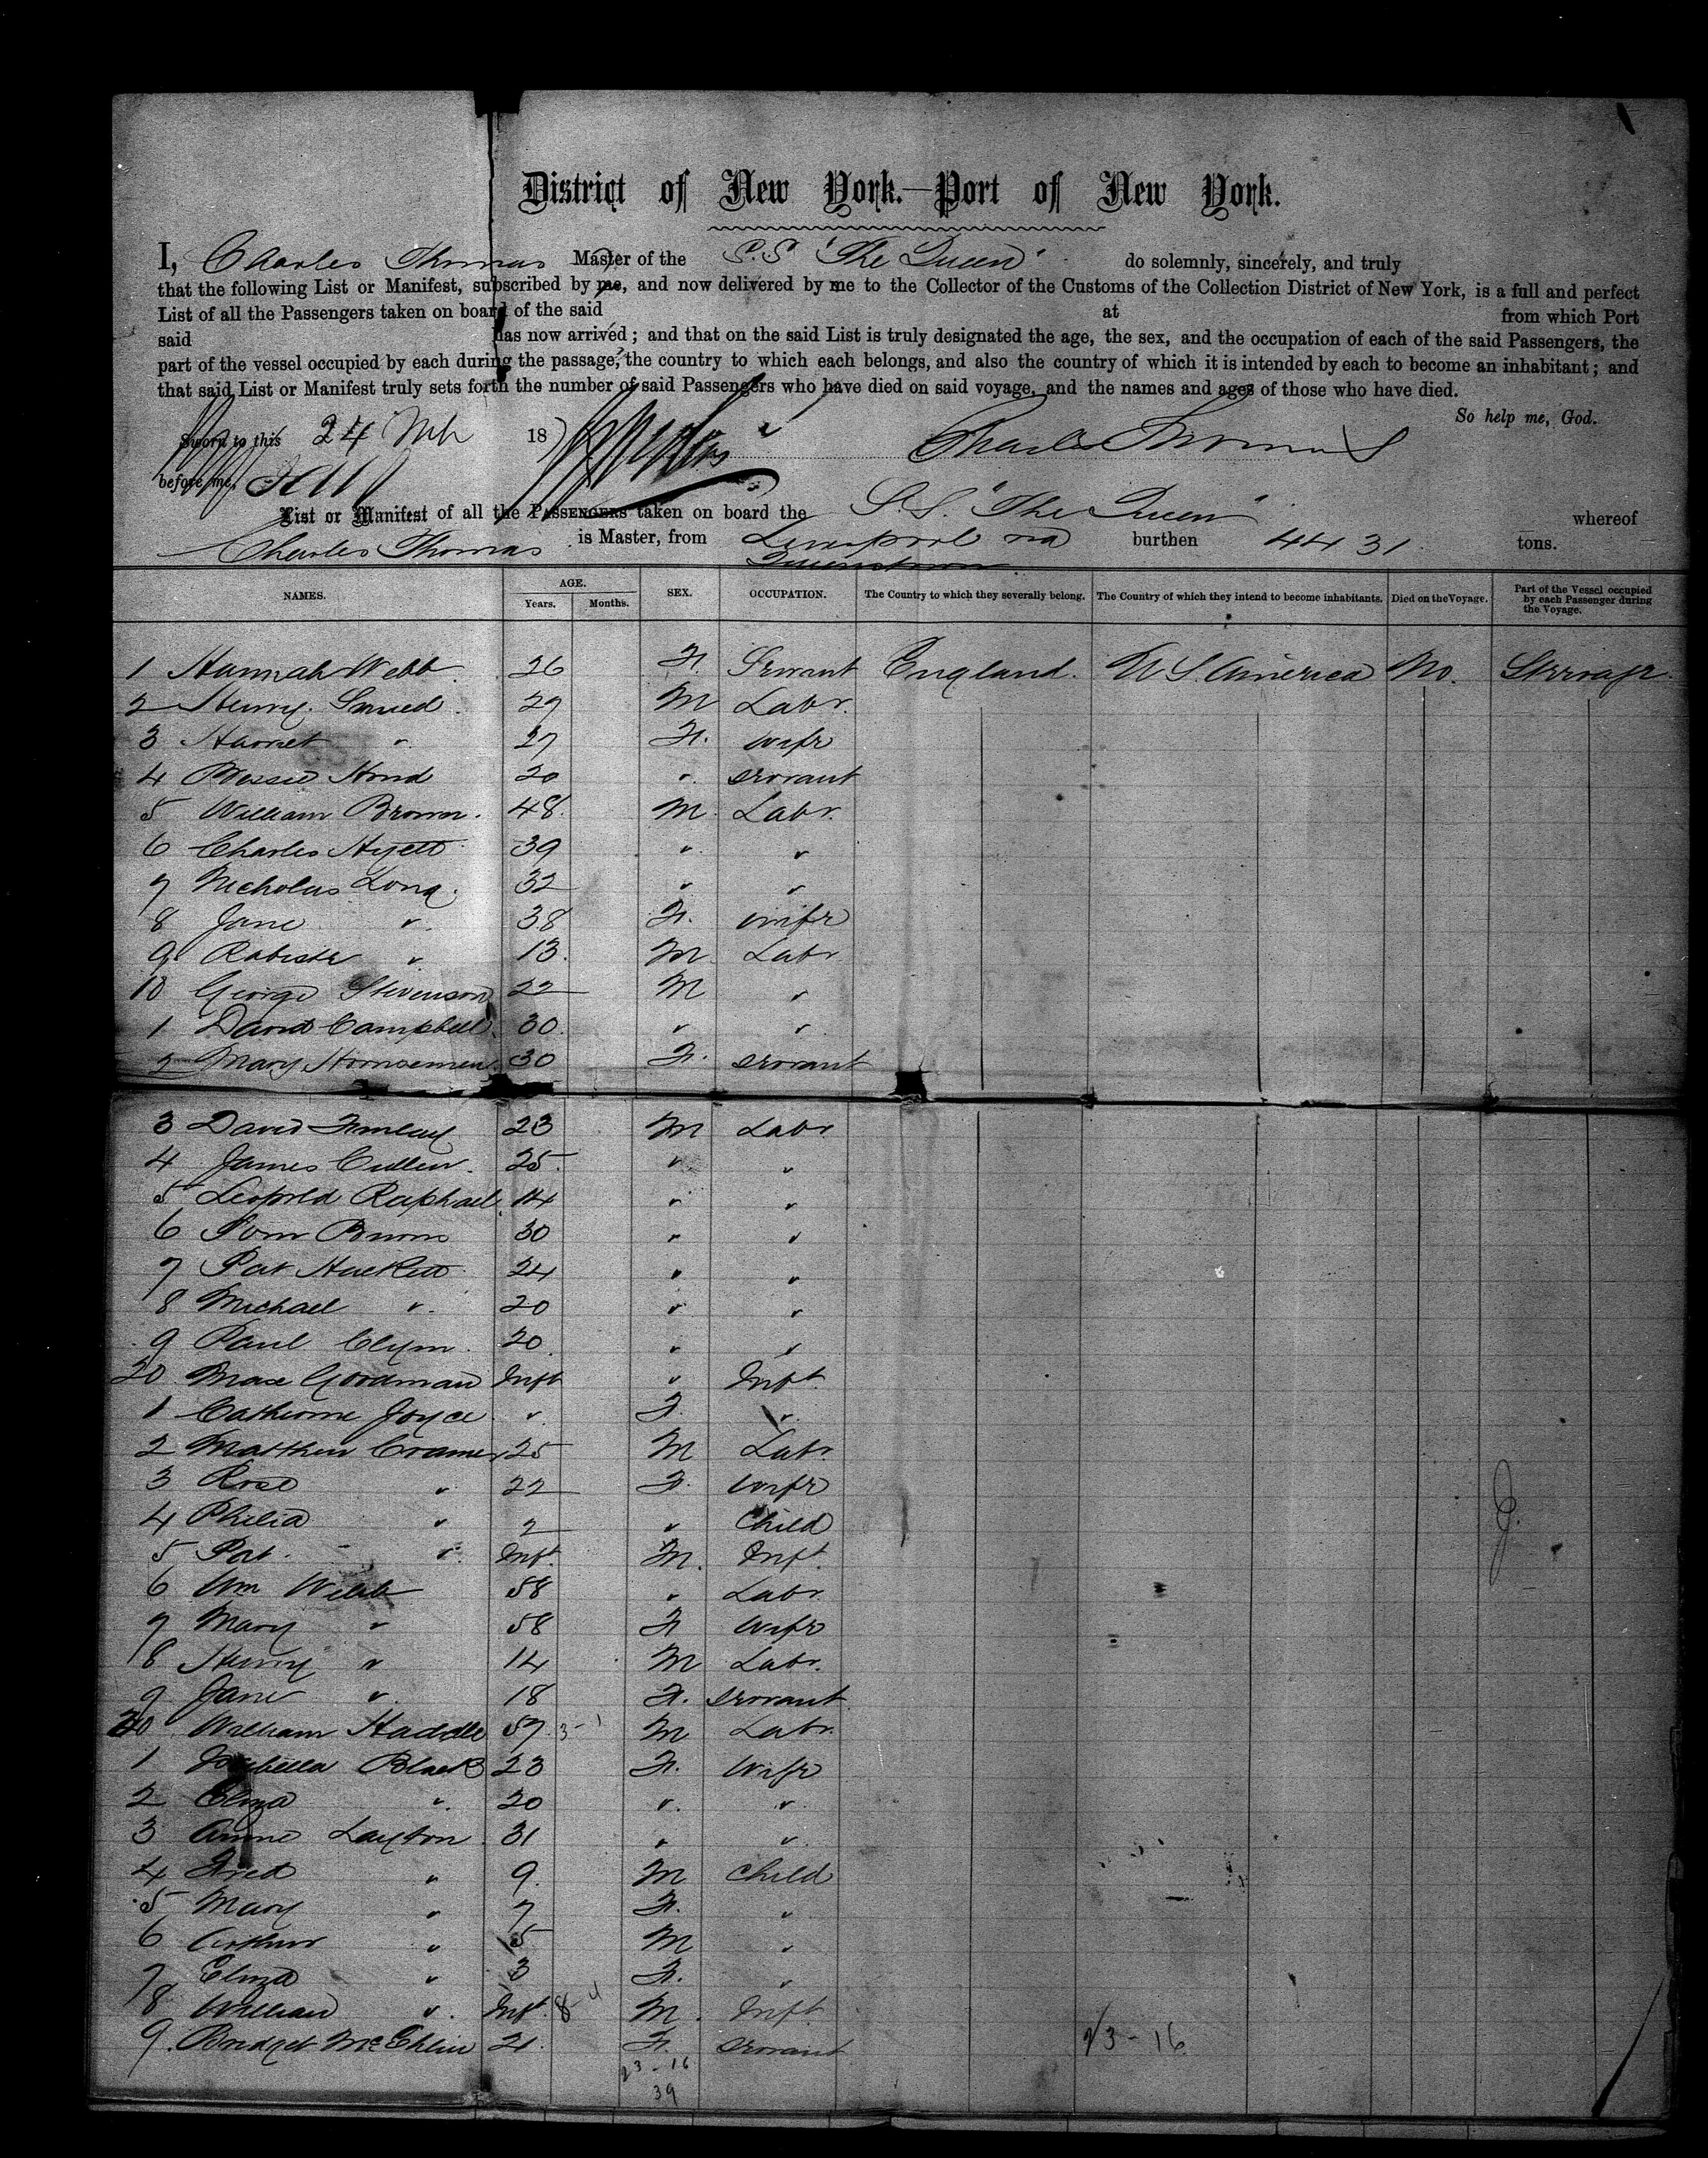 District of New York.—Port of New York.
I, Charles Thomas Master of the S.S 'The Queen' do solemnly, sincerely, and truly
that the following List or Manifest, subscribed by me, and now delivered by me to the Collector of the Customs of the Collection District of New York, is a full and perfect
List of all the Passengers taken on board of the said at from which Port
said has now arrived; and that on the said List is truly designated the age, the sex, and the occupation of each of the said Passengers, the
part of the vessel occupied by each during the passage, the country to which each belongs, and also the country of which it is intended by each to become an inhabitant; and
that said List or Manifest truly sets forth the number of said Passengers who have died on said voyage, and the names and ages of those who have died.
So help me, God.
Sworn to this 24 Mch 18 Charles Thomas
before me,
List or Manifest of all the PASSENGERS taken on board the S.S. "The Queen" whereof
Charles Thomas is Master, from Liverpool via burthen 4431 tons.
Queenstown
NAMES. AGE. Years. Months. SEX. OCCUPATION. The Country to which they severally belong. The Country of which they intend to become inhabitants. Died on the Voyage. Part of the Vessel occupied by each Passenger during the Voyage.
1 Hannah Webb 26 F. Servant England. U S. America No. Steerage.
2 Henry 29 M Labr.
3 Harriet " 27 F. wife
4 Bessie 20 " servant
5 William Brown. 48. M. Labr.
6 Charles Hyett 39 " "
7 Nicholas Long. 32 " "
8 Jane " 38 F. wife
9 " 13. M Labr
10 George Stevenson 22 M "
1 David Campbell 30. " "
2 Mary 30 F. servant
3 David 23 M Labr
4 James Cullen. 25. " "
5 Leopold Raphael. 14 " "
6 30 " "
7 Pat Hackett 24 " "
8 Michael " 20 " "
9 Paul Clym. 20. " "
20 Max Goodman Inft " Inft.
1 Catherine Joyce " F. "
2 Matthew 25 M Labr.
3 Rose " 22 F. wife
4 " 2 " Child
5 Pat. " Inft. M. Inft.
6 Wm Webb 58 " Labr.
7 Mary " 58 F wife
8 Henry " 14 M Labr.
9 Jane " 18 F. servant
30 William Haddle 57. 3-1 M Labr.
1 Isabella Black 23 F. Wife
2 Eliza " 20 " "
3 Annie Layton 31 " "
4 Fred " 9. M Child
5 Mary " 7 F. "
6 Arthur " 5 M "
7 Eliza " 3 F. "
8 William " Inft. 8-4 M. Inft.
9. Bridget 21. F. servant 23-16
23-16
39